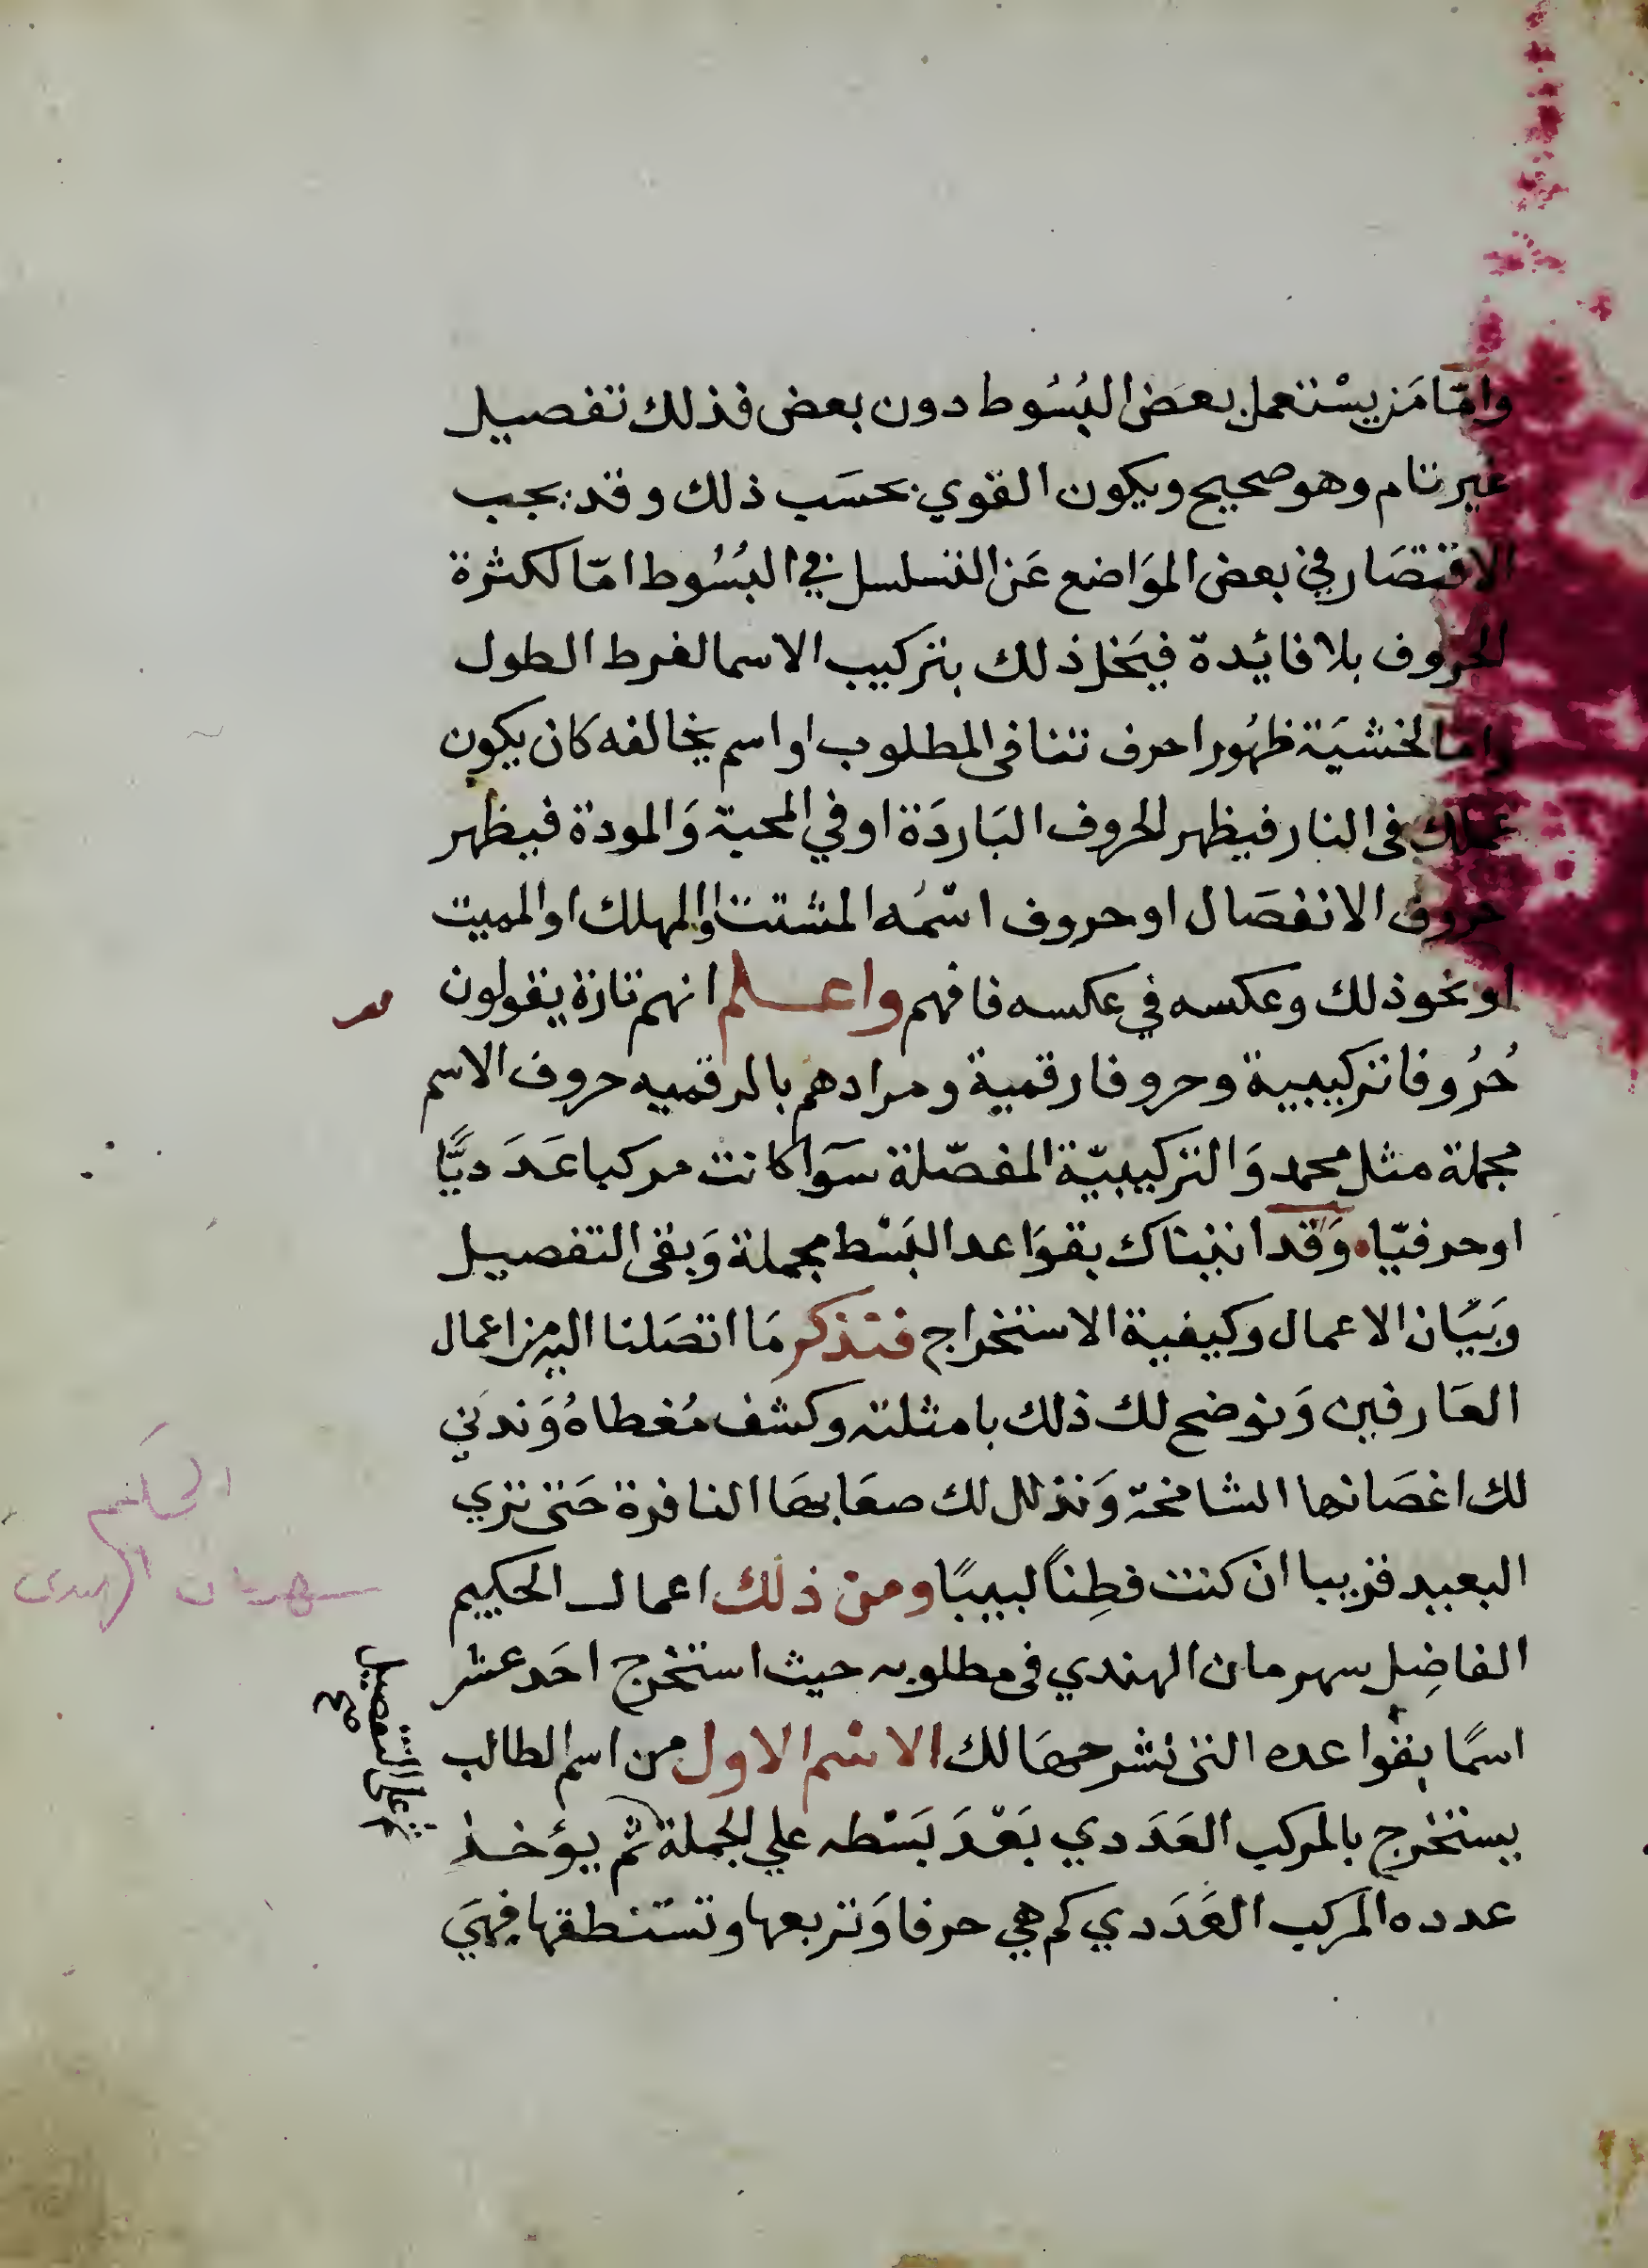 وامّا مَن يسْتعمل بعَض البُسُوط دون بعض فذلك تفصيل
غير تام وهو صحيح ويكون القوي بحسَب ذلك وقد يجب
الاقتصَار في بعض الموَاضع عَن التسلسل في البُسُوط امّا لكثرة
الحروف بلا فائدة فيَخل ذلك بتركيب الاسما لفرط الطول
وامّا لخشيَة ظهُور احرف تنافى المطلوب او اسم يخالفه كان يكون
عملك فى النار فيظهر الحروف البَاردَة او في المحبة وَالمودة فيظهر
حروف الانفصَال او حروف اسْمُه المشتت او المهلك او المميت
او نحو ذلك وعكسه في عكسه فافهم واعلم انهم تارة يقولون
حُرُوفا تركيبية وحروفا رقمية ومرادهم بالرقميه حروف الاسم
مجملة مثل محمد وَالتركيبيّة المفصّلة سَوآ كانت مركبا عَدَديًّا
او حرفيّا. وَقد انبيناك بقوَاعد البَسْط مجملة وَبقى التفصيل
وَبَيَان الاعمال وكيفية الاستخراج فنذكر مَا اتصَلنا اليه من اعمال
العَارفين وَنوضح لك ذلك بامثلته وكشف مُغطاهُ وَندني
لك اغصَانها الشامخة وَنذلل لك صعَابهَا النافرة حَتى تري
البعيد قريبا ان كنت فطِناً لبيبًا ومن ذلك اعمال الحكيم
الفاضِل سهرمان الهندي فى مطلوبه حيث استخرج احَد عشر
اسمًا بقواعده التى نشرحهَا لك الاسْم الاول من اسم الطالب
يستخرج بالمركب العَدَدي بَعْدَ بَسْطه علي الجملة ثم يؤخذ
عدده المركب العَدَدي كم هي حرفا وَتربعها وتسْتنطقها فهيَ
الحكيم
سهرمان الهندى
ثم على التفصيل
صح